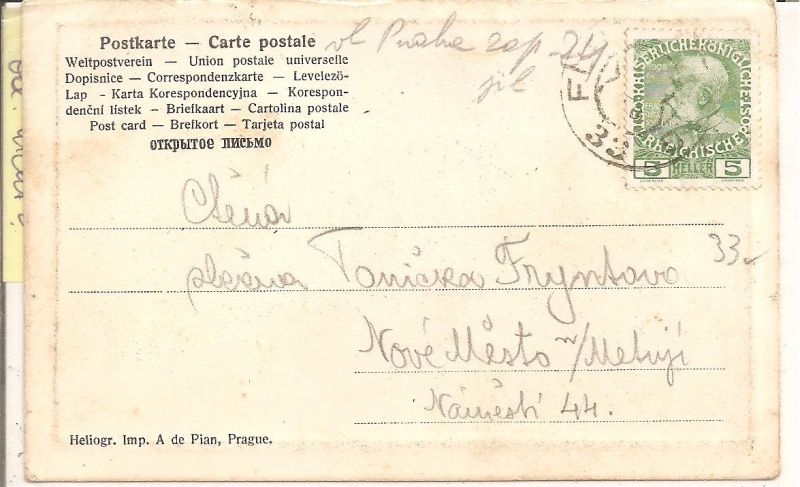 Postkarte — Carte postale
Weltpostverein — Union postale universelle
Dopisnice — Correspondenzkarte — Levelezö-
Lap - Karta Korespondencyjna — Korespon-
denční listek - Briefkaart — Cartolina postale
Post card — Brefkort — Tarjeta postal
ОТКРЫТОЕ ПИСЬМО
vl Praha zop 24j
5 HELLER 5
33
Ctěná
slečna Tonička Fryntova
33
Nové Město n/Metují
Náměstí 44.
Heliogr. Imp. A de Pian, Prague.